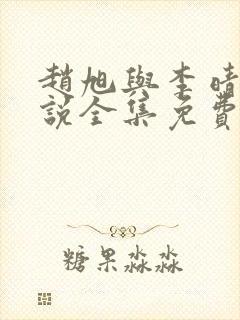 趙旭與李晴
說全集免費
糖果淼淼